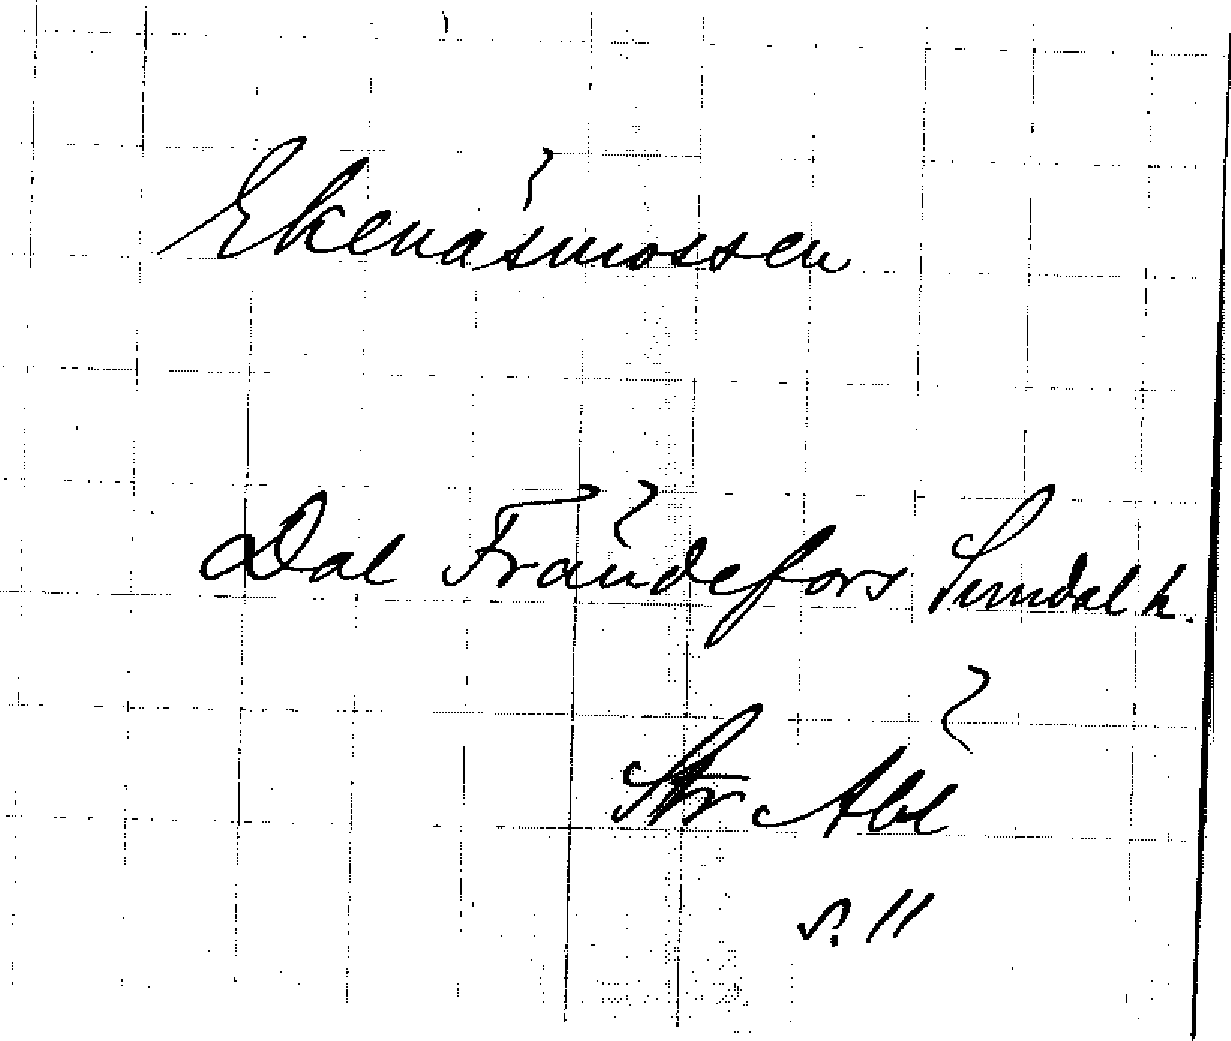 Ekenäsmossen
Dal Frändefors Sundal h.
Str Abl
s. 11